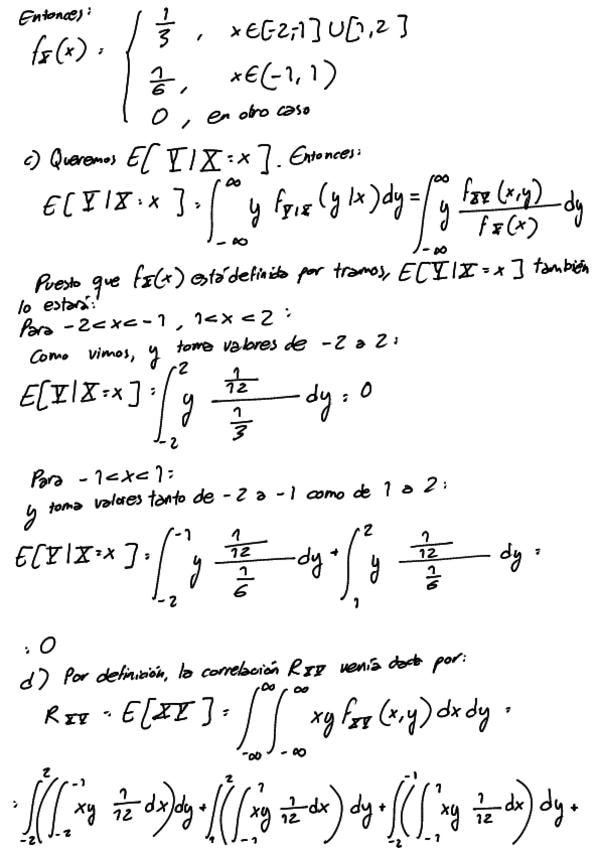 Entonces:
f_X(x) = { 1/3 , x∈[-2,-1]∪[1,2]
1/6 , x∈(-1, 1)
0 , en otro caso
c) Queremos E[Y|X=x]. Entonces:
E[Y|X=x] = ∫_{-∞}^{∞} y f_{Y|X}(y|x)dy = ∫_{-∞}^{∞} y f_{XY}(x,y)/f_X(x) dy
Puesto que f_X(x) está definida por tramos, E[Y|X=x] también
lo estará:
Para -2<x<-1 , 1<x<2 :
Como vimos, y toma valores de -2 a 2:
E[Y|X=x] = ∫_{-2}^{2} y (1/12)/(1/3) dy = 0
Para -1<x<1:
y toma valores tanto de -2 a -1 como de 1 a 2:
E[Y|X=x] = ∫_{-2}^{-1} y (1/12)/(1/6) dy + ∫_{1}^{2} y (1/12)/(1/6) dy =
= 0
d) Por definición, la correlación R_{XY} venía dada por:
R_{XY} = E[XY] = ∫_{-∞}^{∞} ∫_{-∞}^{∞} xy f_{XY}(x,y) dx dy =
= ∫_{-2}^{2} (∫_{-2}^{-1} xy 1/12 dx) dy + ∫_{1}^{2} (∫_{-1}^{1} xy 1/12 dx) dy + ∫_{-2}^{-1} (∫_{-1}^{1} xy 1/12 dx) dy +